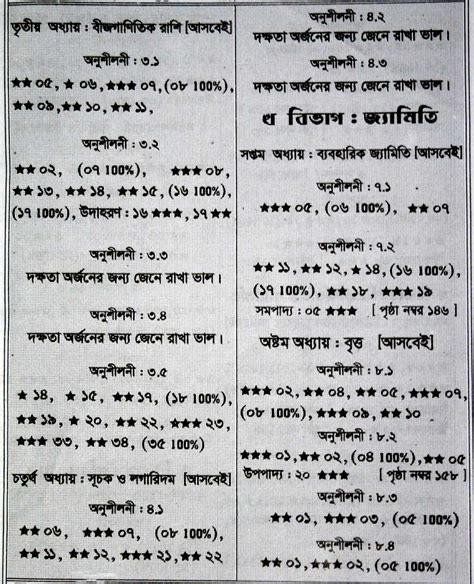 তৃতীয় অধ্যায় : বীজগাণিতিক রাশি [আসবেই]
অনুশীলনী : ৩.১
★★ ০৫, ★ ০৬, ★★★ ০৭, (০৮ 100%),
★★ ০৯, ★★ ১০, ★★ ১১,
অনুশীলনী : ৩.২
★★ ০২, (০৭ 100%), ★★★ ০৮,
★★ ১৩, ★★ ১৪, ★★ ১৫, (১৬ 100%),
(১৭ 100%), উদাহরণ : ১৬ ★★★, ১৭ ★★
অনুশীলনী : ৩.৩
দক্ষতা অর্জনের জন্য জেনে রাখা ভাল।
অনুশীলনী : ৩.৪
দক্ষতা অর্জনের জন্য জেনে রাখা ভাল।
অনুশীলনী : ৩.৫
★ ১৪, ★ ১৫, ★★ ১৭, (১৮ 100%),
★★ ১৯, ★ ২০, ★★ ২২, ★★★ ২৩,
★★★ ৩৩, ★★ ৩৪, (৩৫ 100%)
চতুর্থ অধ্যায় : সূচক ও লগারিদম [আসবেই]
অনুশীলনী : ৪.১
★★ ০৬, ★★★ ০৭, (০৮ 100%),
★★ ১১, ★★ ১২, ★★★ ২১, ★★ ২২
অনুশীলনী : ৪.২
দক্ষতা অর্জনের জন্য জেনে রাখা ভাল।
অনুশীলনী : ৪.৩
দক্ষতা অর্জনের জন্য জেনে রাখা ভাল।
খ বিভাগ : জ্যামিতি
সপ্তম অধ্যায় : ব্যবহারিক জ্যামিতি [আসবেই]
অনুশীলনী : ৭.১
★★★ ০৫, (০৬ 100%), ★★ ০৭
অনুশীলনী : ৭.২
★★ ১১, ★★ ১২, ★ ১৪, (১৬ 100%),
(১৭ 100%), ★★ ১৮, ★★★ ১৯
সমপাদ্য : ০৫ ★★★ [ পৃষ্ঠা নম্বর ১৪৬ ]
অষ্টম অধ্যায় : বৃত্ত [আসবেই]
অনুশীলনী : ৮.১
★★★ ০২, ★★ ০৪, ★★ ০৫, ★★★ ০৭,
(০৮ 100%), ★★★ ০৯, ★★ ১০
অনুশীলনী : ৮.২
★★★ ০১, ★★ ০২, (০৪ 100%), ★★ ০৫
উপপাদ্য : ২০ ★★★ [ পৃষ্ঠা নম্বর ১৫৮ ]
অনুশীলনী : ৮.৩
★★ ০১, ★★★ ০৩, (০৫ 100%)
অনুশীলনী : ৮.৪
★★ ০১, ★★★ ০২, (০৫ 100%)